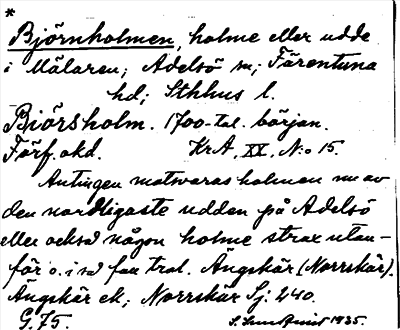 *
Björnholmen, holme eller udde
i Mälaren; Adelsö sn; Färentuna
hd; Sthlms l.
Biörsholm. 1700-tal. början.
Förf. okd. KrA, XX, N:o 15.
Antingen motsvaras holmen nu av
den nordligaste udden på Adelsö
eller också någon holme strax utan-
för o. i så fall trol. Ängskär (Norrskär).
Ängskär ek; Norrskär Sj. 240.
G. 75. 1935.